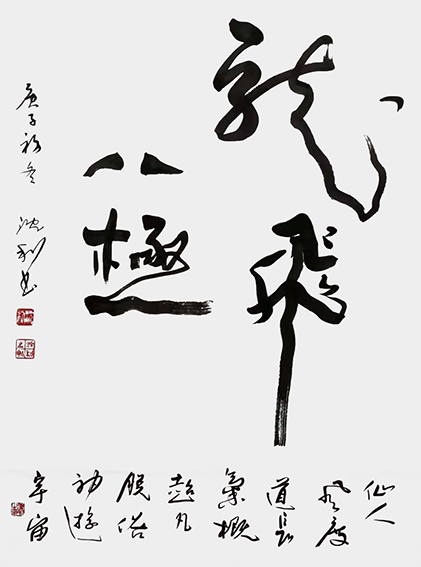 龍飛
八極
庚子初冬
仙人
風度
道長
氣概
超凡
脫俗
神遊
宇宙